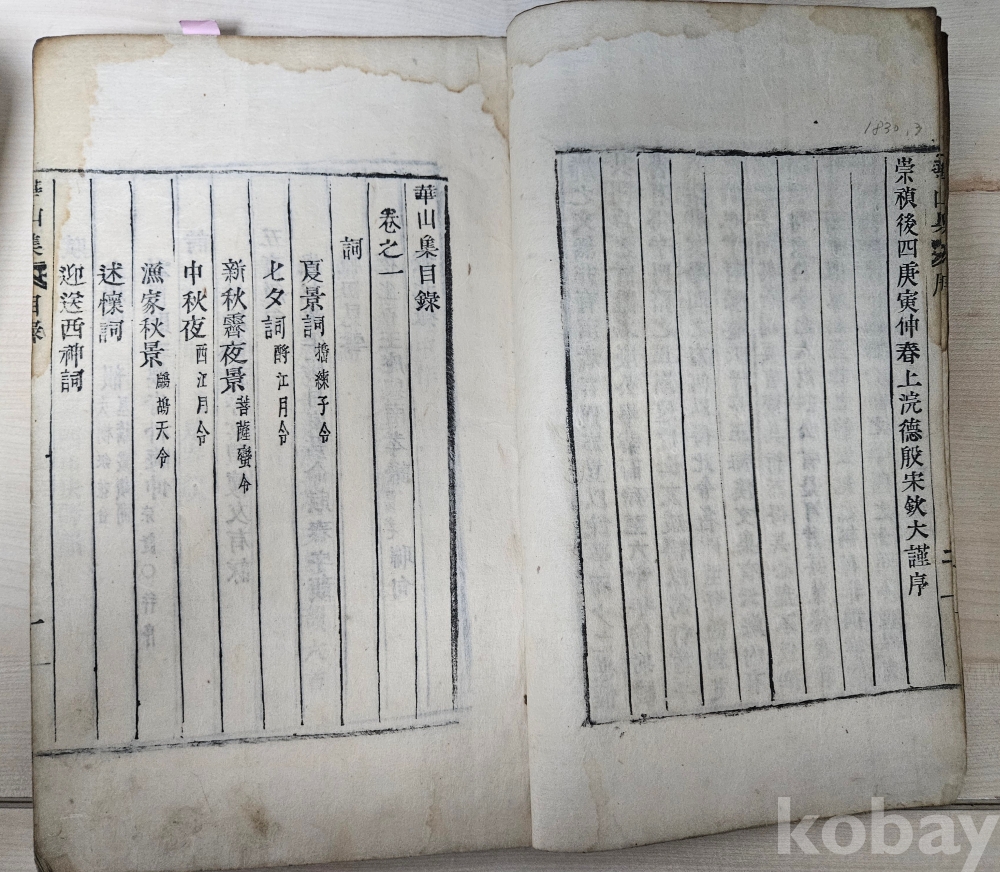 1830.3
崇禎後四庚寅仲春上浣德殷宋欽大謹序
華山集目錄
卷之一
詞
夏景詞 搗練子令
七夕詞 酹江月令
新秋霽夜景 菩薩蠻令
中秋夜 西江月令
漁家秋景 鷓鴣天令
述懷詞
迎送西神詞
kobay